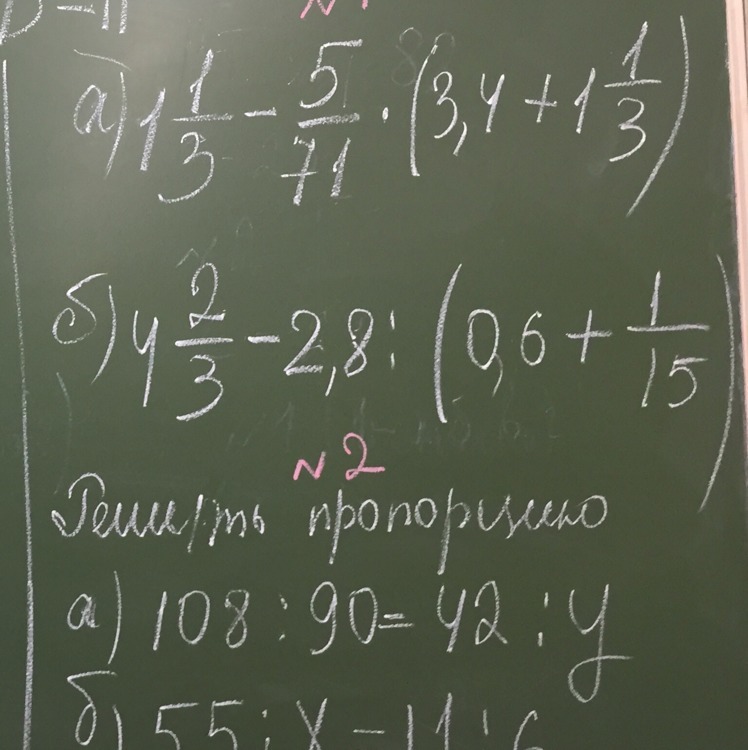 В-II
№1
а) 1 1/3 - 5/71 · (3,4 + 1 1/3)
б) 4 2/3 - 2,8 : (0,6 + 1/15)
№2
Решить пропорцию
а) 108 : 90 = 42 : y
б) 55 : x = 11 : 6